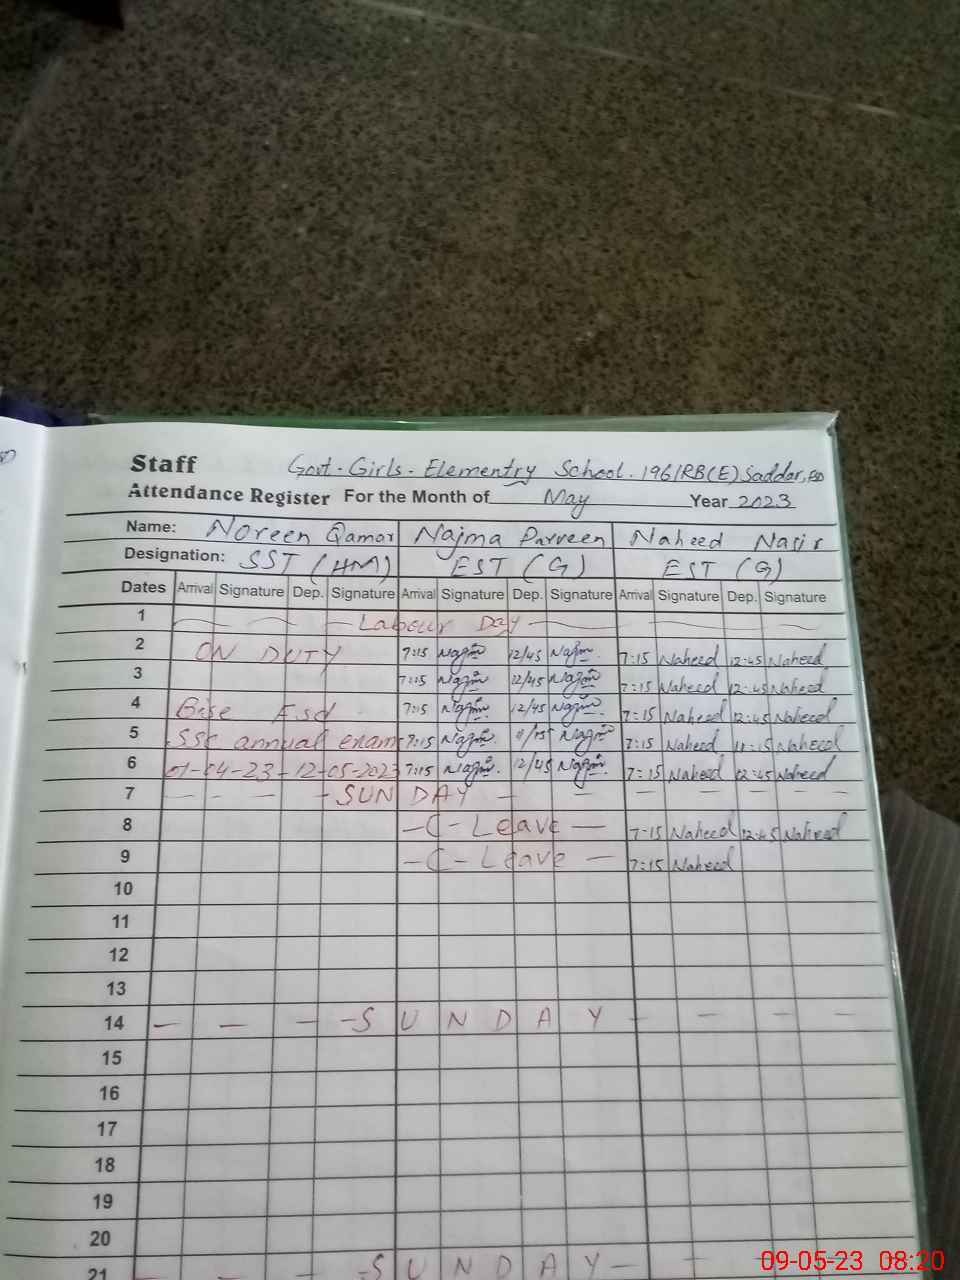 Staff Govt. Girls. Elementry School. 196/RB(E) Saddar,
Attendance Register For the Month of May Year 2023
Name: Noreen Qamar Najma Parveen Naheed Nasir
Designation: SST (HM) EST (G) EST (G)
Dates Arrival Signature Dep. Signature Arrival Signature Dep. Signature Arrival Signature Dep. Signature
1 Labour Day
2 ON DUTY 7:15 Najm 12/45 Najm. 7:15 Naheed 12:45 Naheed
3 7:15 Najm 12/45 Najm 7:15 Naheed 12:45 Naheed
4 Bise Fsd 7:15 Najm 12/45 Najm. 7:15 Naheed 12:45 Naheed
5 SSC annual exam 7:15 Najm. 11/15 Najm 7:15 Naheed 11:15 Naheed
6 01-04-23 - 12-05-2023 7:15 Najm. 12/45 Najm. 7:15 Naheed 12:45 Naheed
7 - - - - SUNDAY - - - - - -
8 - C - Leave - 7:15 Naheed 12:45 Naheed
9 - C - Leave - 7:15 Naheed
10
11
12
13
14 - - - - SUNDAY - - - -
15
16
17
18
19
20
21 - - - - SUNDAY - -
09-05-23 08:20